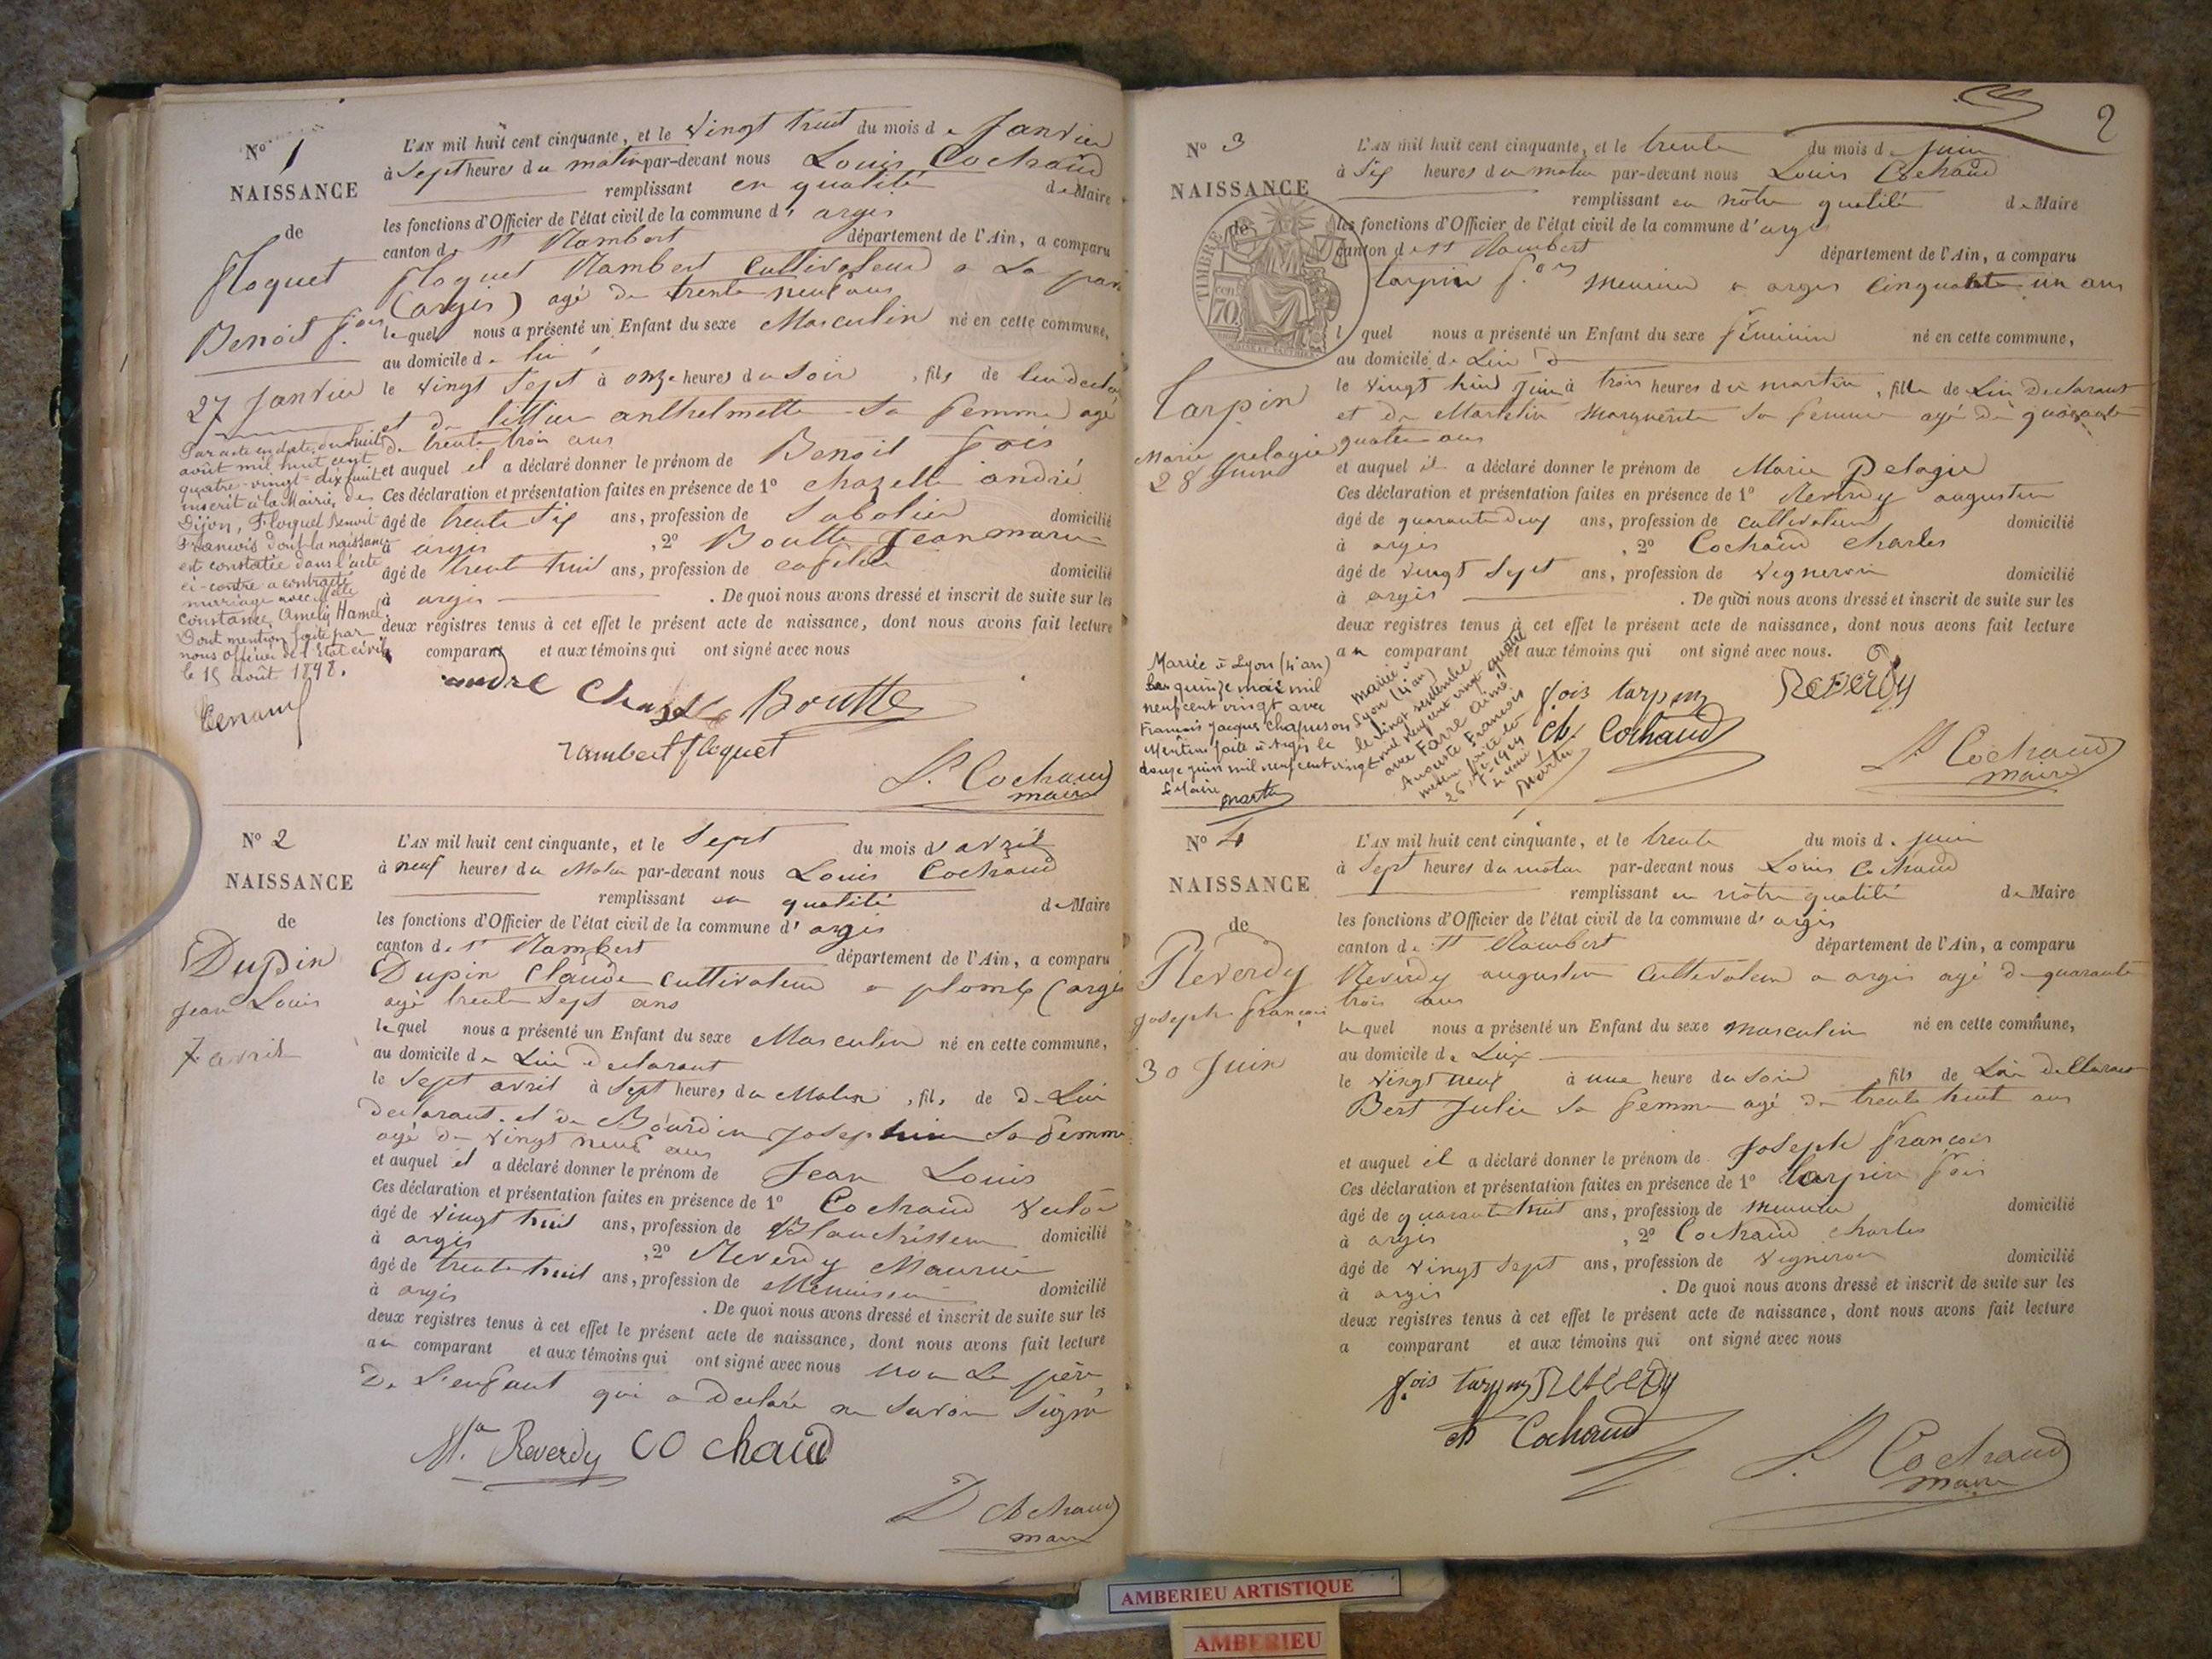 Nº 1
NAISSANCE
de
Floquet
Benoit f.ois
27 Janvier
Par acte en date du huit
août mil huit cent
quatre-vingt-dix huit
inscrit à la Mairie de
Dijon, Floquet Benoit
François dont la naissance
est constatée dans l'acte
ci-contre a contracté
marriage avec
Constance Amely Hamel
Dont mention faite par
nous officier de l'Etat civil
le 15 août 1898.
L'AN mil huit cent cinquante, et le vingt huit du mois de Janvier
à Sept heures du matin par-devant nous Louis Cochaud
remplissant en qualité de Maire
les fonctions d'Officier de l'état civil de la commune d' argis
canton de St Rambert département de l'Ain, a comparu
Floquet Rambert Cultivateur a La
(argis) agé de trente neuf ans
lequel nous a présenté un Enfant du sexe Masculin né en cette commune,
au domicile de lui
le vingt Sept à onze heures du Soir, fils de lui
et de anthelmette Sa femme agé
de trente trois ans
et auquel il a déclaré donner le prénom de Benoit fois
Ces déclaration et présentation faites en présence de 1º chazelle andré
âgé de trente Six ans, profession de Sabotier domicilié
à argis, 2º Boutte Jean marie
âgé de trente huit ans, profession de domicilié
à argis. De quoi nous avons dressé et inscrit de suite sur les
deux registres tenus à cet effet le présent acte de naissance, dont nous avons fait lecture
comparant et aux témoins qui ont signé avec nous
andre Boutte
rambert floquet
L. Cochaud
maire
Nº 2
NAISSANCE
de
Dupin
Jean Louis
7 avril
L'AN mil huit cent cinquante, et le Sept du mois d'avril
à neuf heures du Matin par-devant nous Louis Cochaud
remplissant en qualité de Maire
les fonctions d'Officier de l'état civil de la commune d' argis
canton de St Rambert département de l'Ain, a comparu
Dupin Claude Cultivateur a (argis
agé trente Sept ans
lequel nous a présenté un Enfant du sexe Masculin né en cette commune,
au domicile de Lui declarant
le Sept avril à Sept heures du Matin, fils de de Lui
declarant et de Bourdin Josephine Sa femme
agé de vingt neuf ans
et auquel il a déclaré donner le prénom de Jean Louis
Ces déclaration et présentation faites en présence de 1º Cochaud
âgé de vingt huit ans, profession de Blanchisseur domicilié
à argis, 2º Reverdy Maurice
âgé de trente huit ans, profession de Menuisier domicilié
à argis. De quoi nous avons dressé et inscrit de suite sur les
deux registres tenus à cet effet le présent acte de naissance, dont nous avons fait lecture
au comparant et aux témoins qui ont signé avec nous non Le père
De L'enfant qui a Declaré ne Savoir Signé
Reverdy CO chaud
L Cochaud
maire
2
Nº 3
NAISSANCE
de
TIMBRE
70
Tarpin
Marie pelagie
28 Juin
L'AN mil huit cent cinquante, et le trente du mois de Juin
à Six heures du matin par-devant nous Louis Cochaud
remplissant en nôtre qualité de Maire
les fonctions d'Officier de l'état civil de la commune d'argis
canton de St Rambert département de l'Ain, a comparu
tarpin f.ois Meunier a argis Cinquante un ans
l quel nous a présenté un Enfant du sexe féminin né en cette commune,
au domicile de Lui
le vingt huit Juin à trois heures du martin, fille de Lui Declarant
et de Martelin Marguerite Sa femme agé de quarante
quatre ans
et auquel il a déclaré donner le prénom de Marie Pelagie
Ces déclaration et présentation faites en présence de 1º Reverdy augustin
âgé de quarante deux ans, profession de cultivateur domicilié
à argis, 2º Cochaud charles
âgé de vingt Sept ans, profession de vigneron domicilié
à argis. De quoi nous avons dressé et inscrit de suite sur les
deux registres tenus à cet effet le présent acte de naissance, dont nous avons fait lecture
au comparant et aux témoins qui ont signé avec nous.
Mariée à Lyon (4e arr)
le quinze mai mil
neuf cent vingt avec
François Jacques Chapuson
Mention faite à Argis le
douze juin mil neuf cent vingt
Le Maire
Martin
Mariée à
Lyon (4e arr)
le vingt septembre
mil neuf cent vingt quatre
avec Favre Aimé
Auguste François
mention faite le
26-9-1924
Le maire
Martin
fois tarpin REVERDY
ch. Cochaud
L Cochaud
maire
Nº 4
NAISSANCE
de
Reverdy
Joseph françois
30 Juin
L'AN mil huit cent cinquante, et le trente du mois de Juin
à Sept heures du matin par-devant nous Louis Cochaud
remplissant en nôtre qualité de Maire
les fonctions d'Officier de l'état civil de la commune d' argis
canton de St Rambert département de l'Ain, a comparu
Reverdy augustin Cultivateur a argis agé de quarante
trois ans
lequel nous a présenté un Enfant du sexe masculin né en cette commune,
au domicile de Lui
le vingt neuf à une heure du Soir, fils de Lui
Bert Julie Sa femme agé de trente huit ans
et auquel il a déclaré donner le prénom de Joseph françois
Ces déclaration et présentation faites en présence de 1º tarpin fois
âgé de quarante huit ans, profession de meunier domicilié
à argis, 2º Cochaud charles
âgé de vingt Sept ans, profession de vigneron domicilié
à argis. De quoi nous avons dressé et inscrit de suite sur les
deux registres tenus à cet effet le présent acte de naissance, dont nous avons fait lecture
a comparant et aux témoins qui ont signé avec nous
f.ois tarpin REVERDY
ch Cochaud
L. Cochaud
maire
AMBERIEU ARTISTIQUE
AMBERIEU